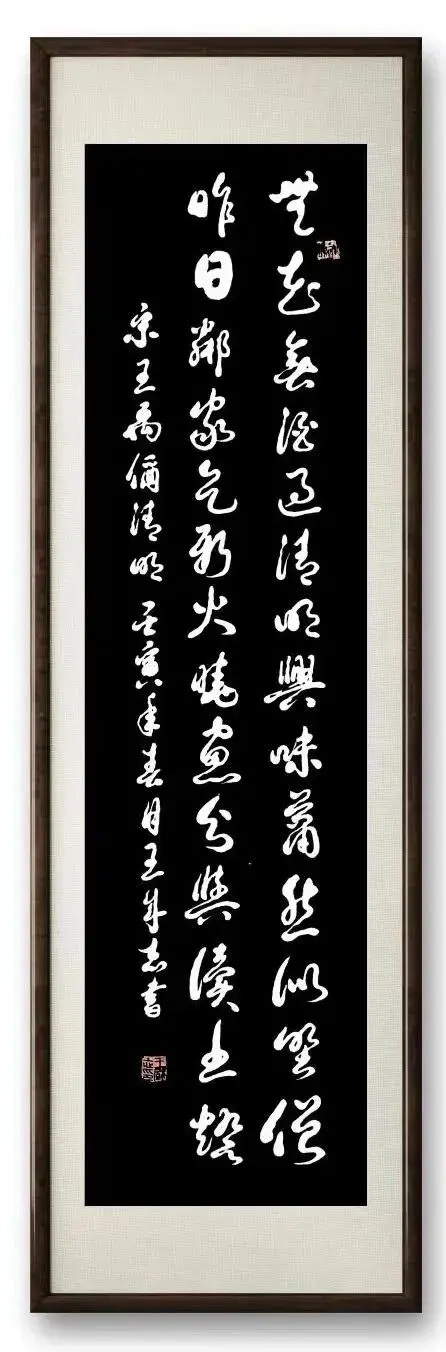 無花無酒過清明興味蕭然似野僧
昨日鄰家乞新火曉窗分與讀書燈
宋王禹偁清明 壬寅年春月王志書